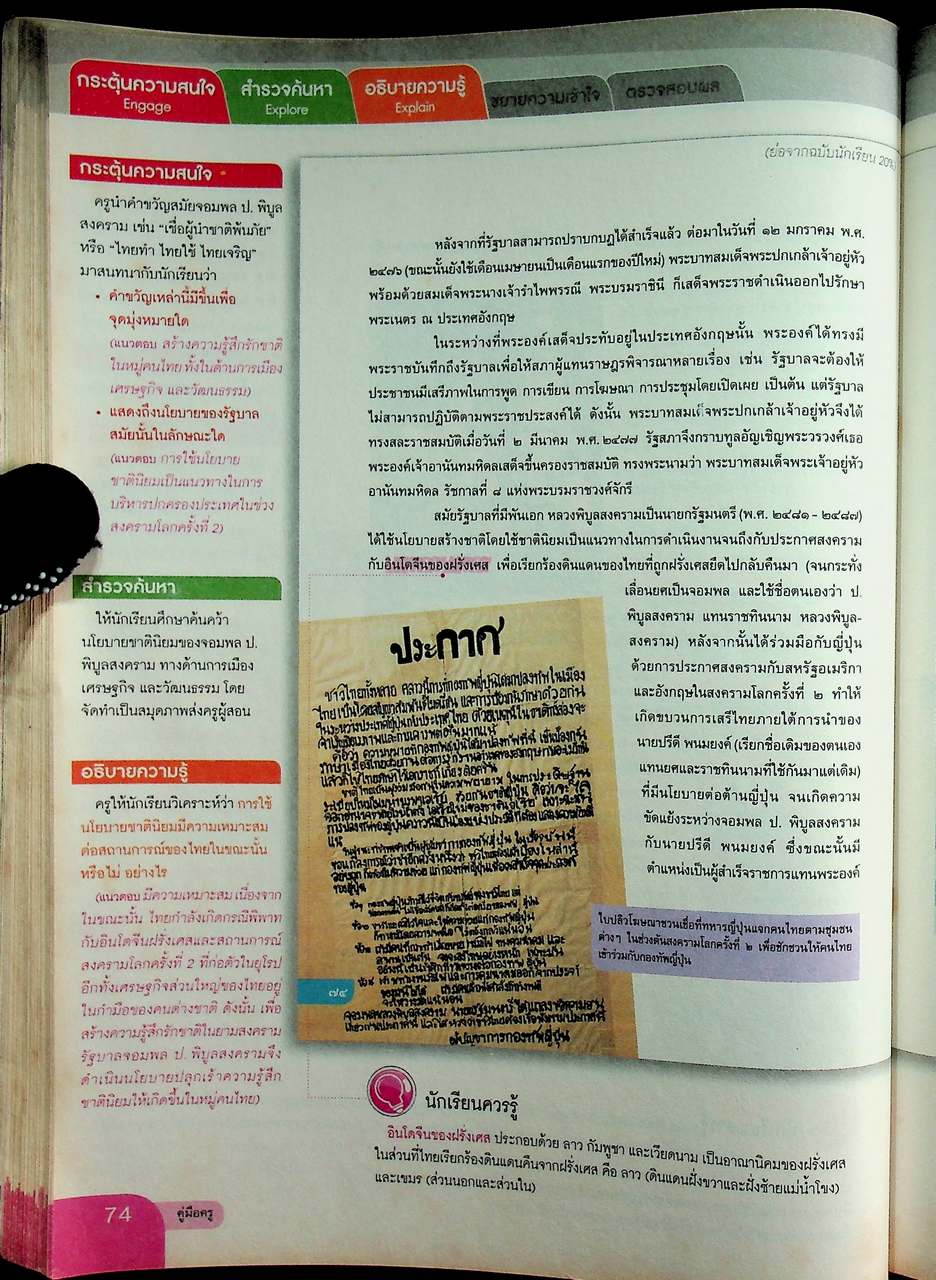 กระตุ้นความสนใจ
Engage
สำรวจค้นหา
Explore
อธิบายความรู้
Explain
ขยายความเข้าใจ
ตรวจสอบผล
กระตุ้นความสนใจ
ครูนำคำขวัญสมัยจอมพล ป. พิบูล
สงคราม เช่น “เชื่อผู้นำชาติพ้นภัย”
หรือ “ไทยทำ ไทยใช้ ไทยเจริญ”
มาสนทนากับนักเรียนว่า
• คำขวัญเหล่านี้มีขึ้นเพื่อ
จุดมุ่งหมายใด
(แนวตอบ สร้างความรู้สึกรักชาติ
ในหมู่คนไทย ทั้งในด้านการเมือง
เศรษฐกิจ และวัฒนธรรม)
• แสดงถึงนโยบายของรัฐบาล
สมัยนั้นในลักษณะใด
(แนวตอบ การใช้นโยบาย
ชาตินิยมเป็นแนวทางในการ
บริหารปกครองประเทศในช่วง
สงครามโลกครั้งที่ 2)
สำรวจค้นหา
ให้นักเรียนศึกษาค้นคว้า
นโยบายชาตินิยมของจอมพล ป.
พิบูลสงคราม ทางด้านการเมือง
เศรษฐกิจ และวัฒนธรรม โดย
จัดทำเป็นสมุดภาพส่งครูผู้สอน
อธิบายความรู้
ครูให้นักเรียนวิเคราะห์ว่า การใช้
นโยบายชาตินิยมมีความเหมาะสม
ต่อสถานการณ์ของไทยในขณะนั้น
หรือไม่ อย่างไร
(แนวตอบ มีความเหมาะสม เนื่องจาก
ในขณะนั้น ไทยกำลังเกิดกรณีพิพาท
กับอินโดจีนฝรั่งเศสและสถานการณ์
สงครามโลกครั้งที่ 2 ที่ก่อตัวในยุโรป
อีกทั้งเศรษฐกิจส่วนใหญ่ของไทยอยู่
ในกำมือของคนต่างชาติ ดังนั้น เพื่อ
สร้างความรู้สึกรักชาติในยามสงคราม
รัฐบาลจอมพล ป. พิบูลสงครามจึง
ดำเนินนโยบายปลุกเร้าความรู้สึก
ชาตินิยมให้เกิดขึ้นในหมู่คนไทย)
(ย่อจากฉบับนักเรียน 20%)
หลังจากที่รัฐบาลสามารถปราบกบฏได้สำเร็จแล้ว ต่อมาในวันที่ ๑๒ มกราคม พ.ศ.
๒๔๗๖ (ขณะนั้นยังใช้เดือนเมษายนเป็นเดือนแรกของปีใหม่) พระบาทสมเด็จพระปกเกล้าเจ้าอยู่หัว
พร้อมด้วยสมเด็จพระนางเจ้ารำไพพรรณี พระบรมราชินี ก็เสด็จพระราชดำเนินออกไปรักษา
พระเนตร ณ ประเทศอังกฤษ
ในระหว่างที่พระองค์เสด็จประทับอยู่ในประเทศอังกฤษนั้น พระองค์ได้ทรงมี
พระราชบันทึกถึงรัฐบาลเพื่อให้สภาผู้แทนราษฎรพิจารณาหลายเรื่อง เช่น รัฐบาลจะต้องให้
ประชาชนมีเสรีภาพในการพูด การเขียน การโฆษณา การประชุมโดยเปิดเผย เป็นต้น แต่รัฐบาล
ไม่สามารถปฏิบัติตามพระราชประสงค์ได้ ดังนั้น พระบาทสมเด็จพระปกเกล้าเจ้าอยู่หัวจึงได้
ทรงสละราชสมบัติเมื่อวันที่ ๒ มีนาคม พ.ศ. ๒๔๗๗ รัฐสภาจึงกราบทูลอัญเชิญพระวรวงศ์เธอ
พระองค์เจ้าอานันทมหิดลเสด็จขึ้นครองราชสมบัติ ทรงพระนามว่า พระบาทสมเด็จพระเจ้าอยู่หัว
อานันทมหิดล รัชกาลที่ ๘ แห่งพระบรมราชวงศ์จักรี
สมัยรัฐบาลที่มีพันเอก หลวงพิบูลสงครามเป็นนายกรัฐมนตรี (พ.ศ. ๒๔๘๑ - ๒๔๘๗)
ได้ใช้นโยบายสร้างชาติโดยใช้ชาตินิยมเป็นแนวทางในการดำเนินงานจนถึงกับประกาศสงคราม
กับอินโดจีนของฝรั่งเศส เพื่อเรียกร้องดินแดนของไทยที่ถูกฝรั่งเศสยึดไปกลับคืนมา (จนกระทั่ง
เลื่อนยศเป็นจอมพล และใช้ชื่อตนเองว่า ป.
พิบูลสงคราม แทนราชทินนาม หลวงพิบูล-
สงคราม) หลังจากนั้นได้ร่วมมือกับญี่ปุ่น
ด้วยการประกาศสงครามกับสหรัฐอเมริกา
และอังกฤษในสงครามโลกครั้งที่ ๒ ทำให้
เกิดขบวนการเสรีไทยภายใต้การนำของ
นายปรีดี พนมยงค์ (เรียกชื่อเดิมของตนเอง
แทนยศและราชทินนามที่ใช้กันมาแต่เดิม)
ที่มีนโยบายต่อต้านญี่ปุ่น จนเกิดความ
ขัดแย้งระหว่างจอมพล ป. พิบูลสงคราม
กับนายปรีดี พนมยงค์ ซึ่งขณะนั้นมี
ตำแหน่งเป็นผู้สำเร็จราชการแทนพระองค์
ประกาศ
ใบปลิวโฆษณาชวนเชื่อที่ทหารญี่ปุ่นแจกคนไทยตามชุมชน
ต่างๆ ในช่วงต้นสงครามโลกครั้งที่ ๒ เพื่อชักชวนให้คนไทย
เข้าร่วมกับกองทัพญี่ปุ่น
๗๔
นักเรียนควรรู้
อินโดจีนของฝรั่งเศส ประกอบด้วย ลาว กัมพูชา และเวียดนาม เป็นอาณานิคมของฝรั่งเศส
ในส่วนที่ไทยเรียกร้องดินแดนคืนจากฝรั่งเศส คือ ลาว (ดินแดนฝั่งขวาและฝั่งซ้ายแม่น้ำโขง)
และเขมร (ส่วนนอกและส่วนใน)
74
คู่มือครู